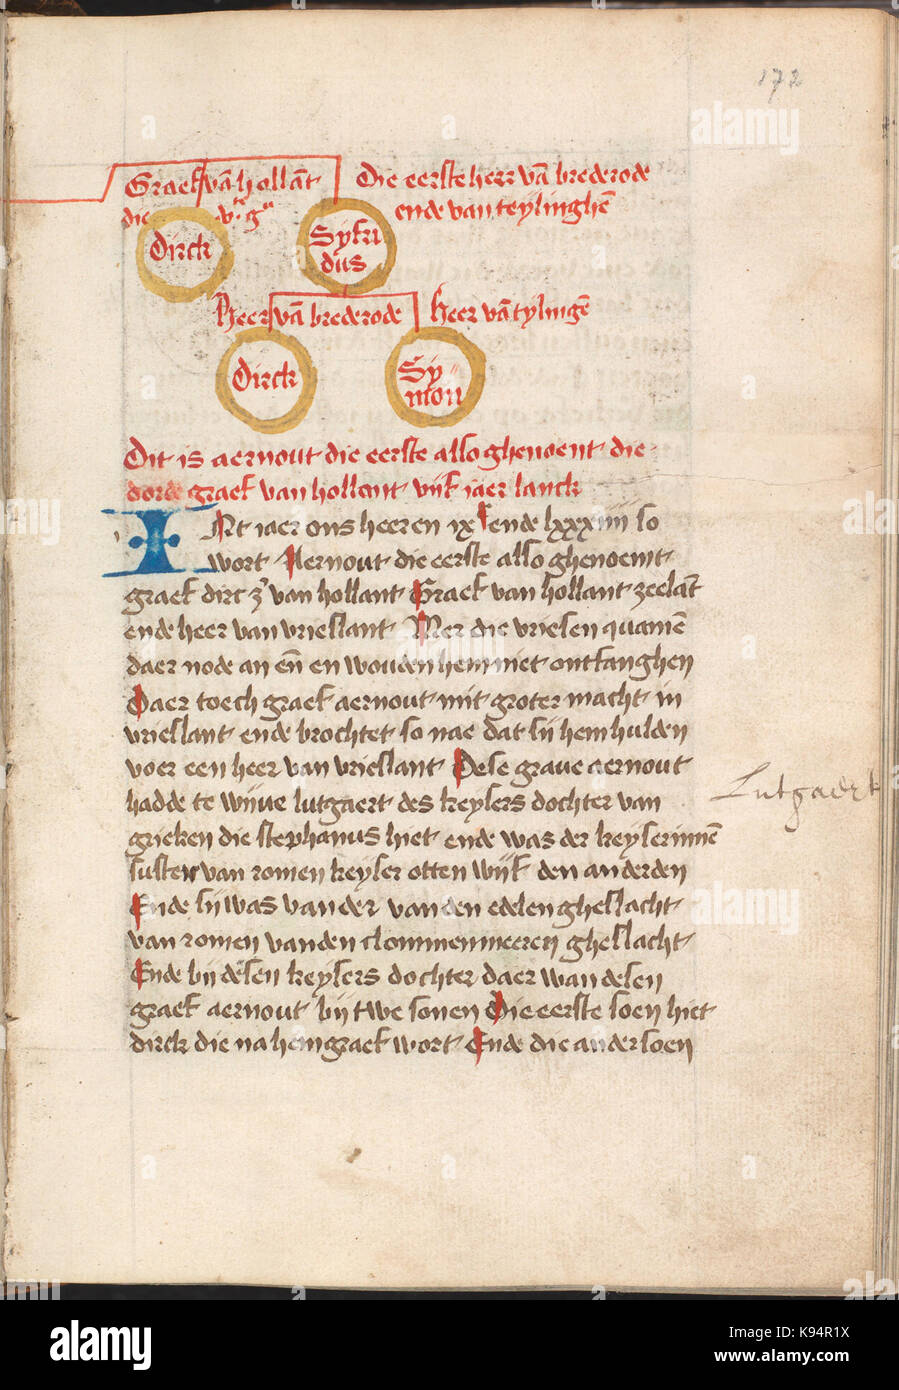 172
Graef van hollāt
Die eerste heer vā brederode
die
ende van teylinghē
Dirck
Syfri
dus
Heer vā brederode
Heer vā tylingē
Dirck
Sy=
mon
Dit is aernout die eerste also ghenoent die
dorde graef van hollant vijf iaer lanck
INt iaer ons heeren ixᶜ ende lxxxiiij so
wort Aernout die eerste also ghenoemt
graef dirc zʾ van hollant Graef van hollant zeelāt
ende heer van vrieslant Mer die vriesen quamē
daer node an eñ en wouden hem niet ontfanghen
Daer toech graef aernout mit groter macht in
vrieslant ende brochtet so nae dat sij hem hulden
voer een heer van vrieslant Dese graue aernout
hadde te wijue lutgaert des keysers dochter van
Lutgaert
grieken die stephanus hiet ende was der keyserinnē
suster van romen keyser otten wijf den anderden
Ende sij was vander van den edelen gheslacht
van romen vanden clommenmeeren gheslacht
Ende bij desen keysers dochter daer wan desen
graef aernout bij twe sonen Die eerste soen hiet
dirck die na hem graef wort Ende die ander soen
alamy
K94R1X
www.alamy.com